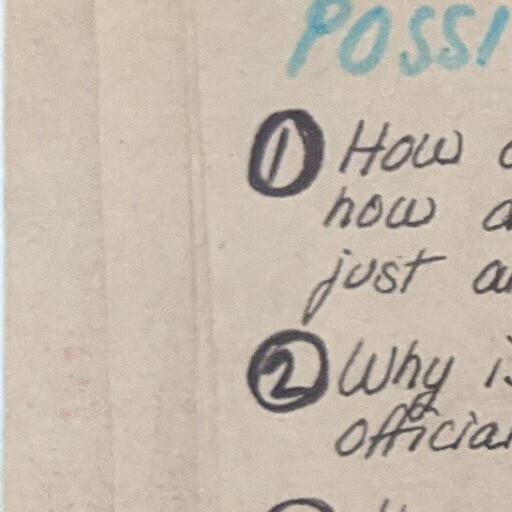 POSSI
① How
how a
just a
② Why is
official